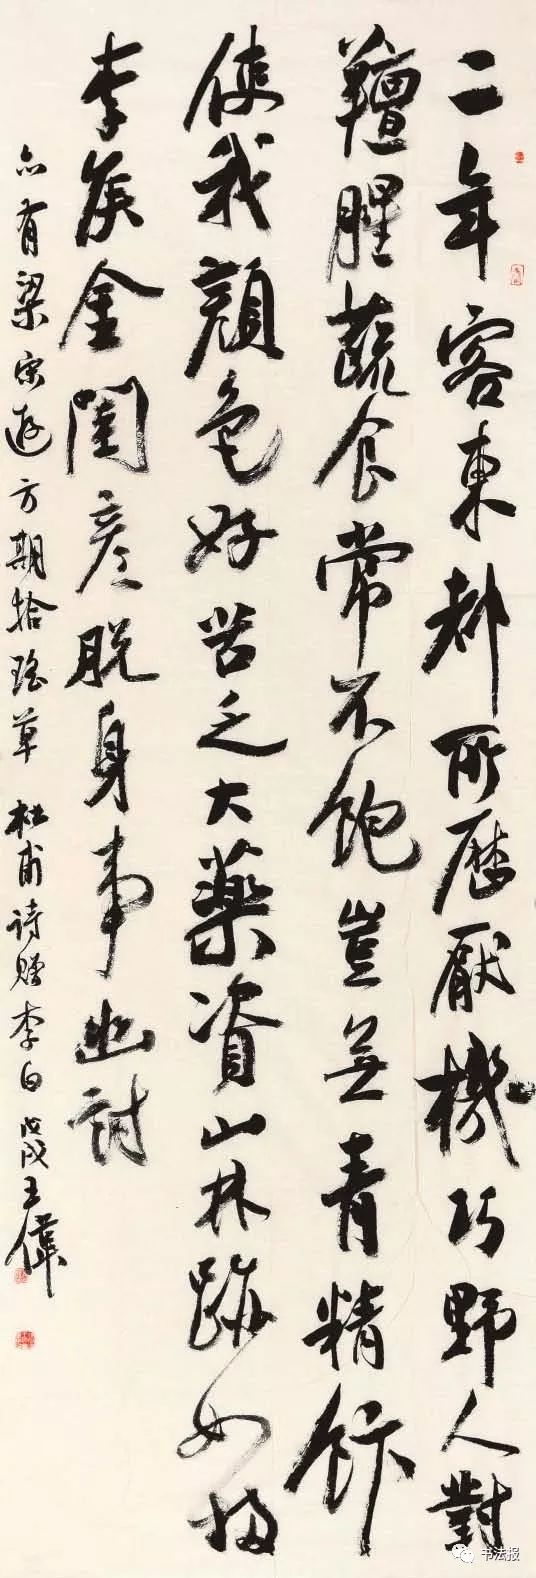 二年客東都所歷厭機巧野人對
羶腥蔬食常不飽豈無青精飰
使我顏色好苦乏大藥資山林跡如掃
李侯金閨彦脱身事幽討
亦有梁宋遊方期拾瑤草 杜甫诗赠李白 戊戌王偉
书法报